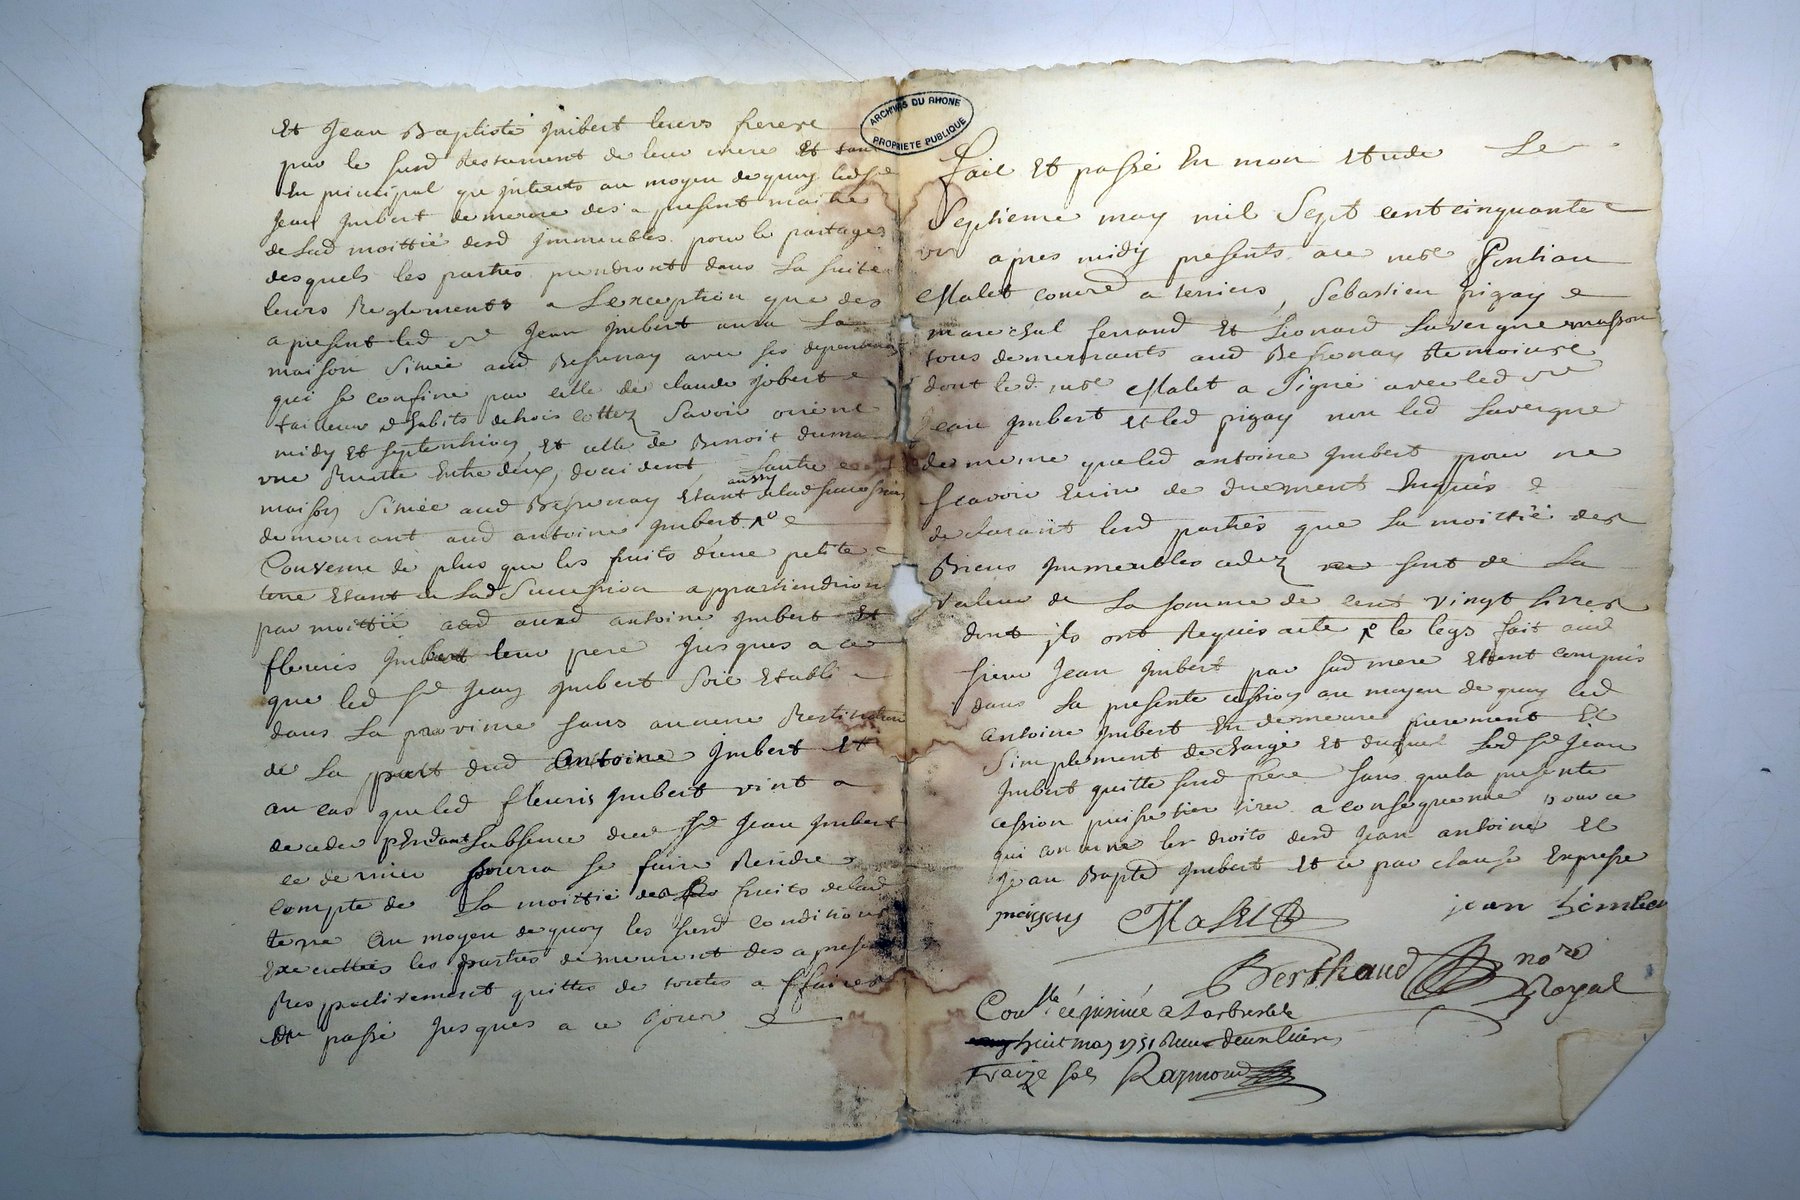 Et Jean Baptiste Imbert leurs frerere
par le susd testament de leur mere Et tant
En principal qu'jnterets au moyen de quoy led Sr
Jean Imbert demeure des a present maitre
de Lad moittié desd Immeubles pour le partage
desquels les parties prendront dans La suite
leurs Reglements a Lexception que des
a present led Sr Jean Imbert aura La
maison Sittuée aud Bessenay avec ses dependances
qui se confine par celle de claude Jobert
tailleur d'habits dehois cottez Savoir orient
midy Et septentrion Et celle de Benoit duma
une Ruette Entre deux, doccident, Lautre
maison Sittuée aud Bessenay Etant aussy de lad succession
demeurant aud antoine Imbert
Convenu de plus que les fruits d'une petite
terre Etant de Lad Succession appartiendront
par moittié aud antoine Imbert Et
fleuris Imbert leur pere Jusques a ce
que led Sr Jean Imbert Soit Etabli
dans La province sans aucune Restitution
de La part dud Antoine Imbert Et
au cas que led fleuris Imbert vint a
deceder pendant Labsence dud Sr Jean Imbert
ce dernier pourra se faire Rendre
compte de La moittié des fruits de lad
terre au moyen de quoy les susd conditions
Executtées les parties demeurent des a present
Respectivement quittes de toutes affaires
du passé Jusques a ce Jour
ARCHIVES DU RHONE
PROPRIETE PUBLIQUE
Fait Et passé En mon Etude Le
Septieme may mil Sept cent cinquante
un apres midy presents me
Malet a terriers, Sebastien pigay
marechal ferrand Et Leonard Lavergne masson
tous demeurants aud Bessenay temoins
dont led Malet a Signé avec led Sr
Jean Imbert Et led pigay non led Lavergne
de meme que led antoine Imbert pour ne
scavoir Ecrire de duement Enquis
declarant lesd parties que La moittié des
Biens Immeubles cedez sont de La
valeur de La somme de cent vingt livres
dont jls ont Requis acte le legs fait aud
sieur Jean Imbert par sad mere Etant compris
dans La presente cession au moyen de quoy led
Antoine Imbert En demeure purement Et
Simplement dechargé Et duquel Led Sr Jean
Imbert quitte sond frere sans que la presente
cession puisse tirer a consequence pour ce
qui concerne les droits desd Jean antoine Et
Jean Bapte Imbert Et ce par clause Expresse
Malet jean himber
Berthaud nore
Royal
Conlle a Larbresle
huit may 1751 Recu
Traize sols Raymond